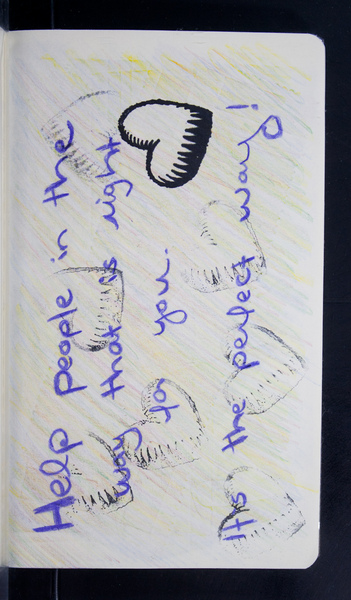 Help people in the
way that is right
for you.
It's the perfect way!